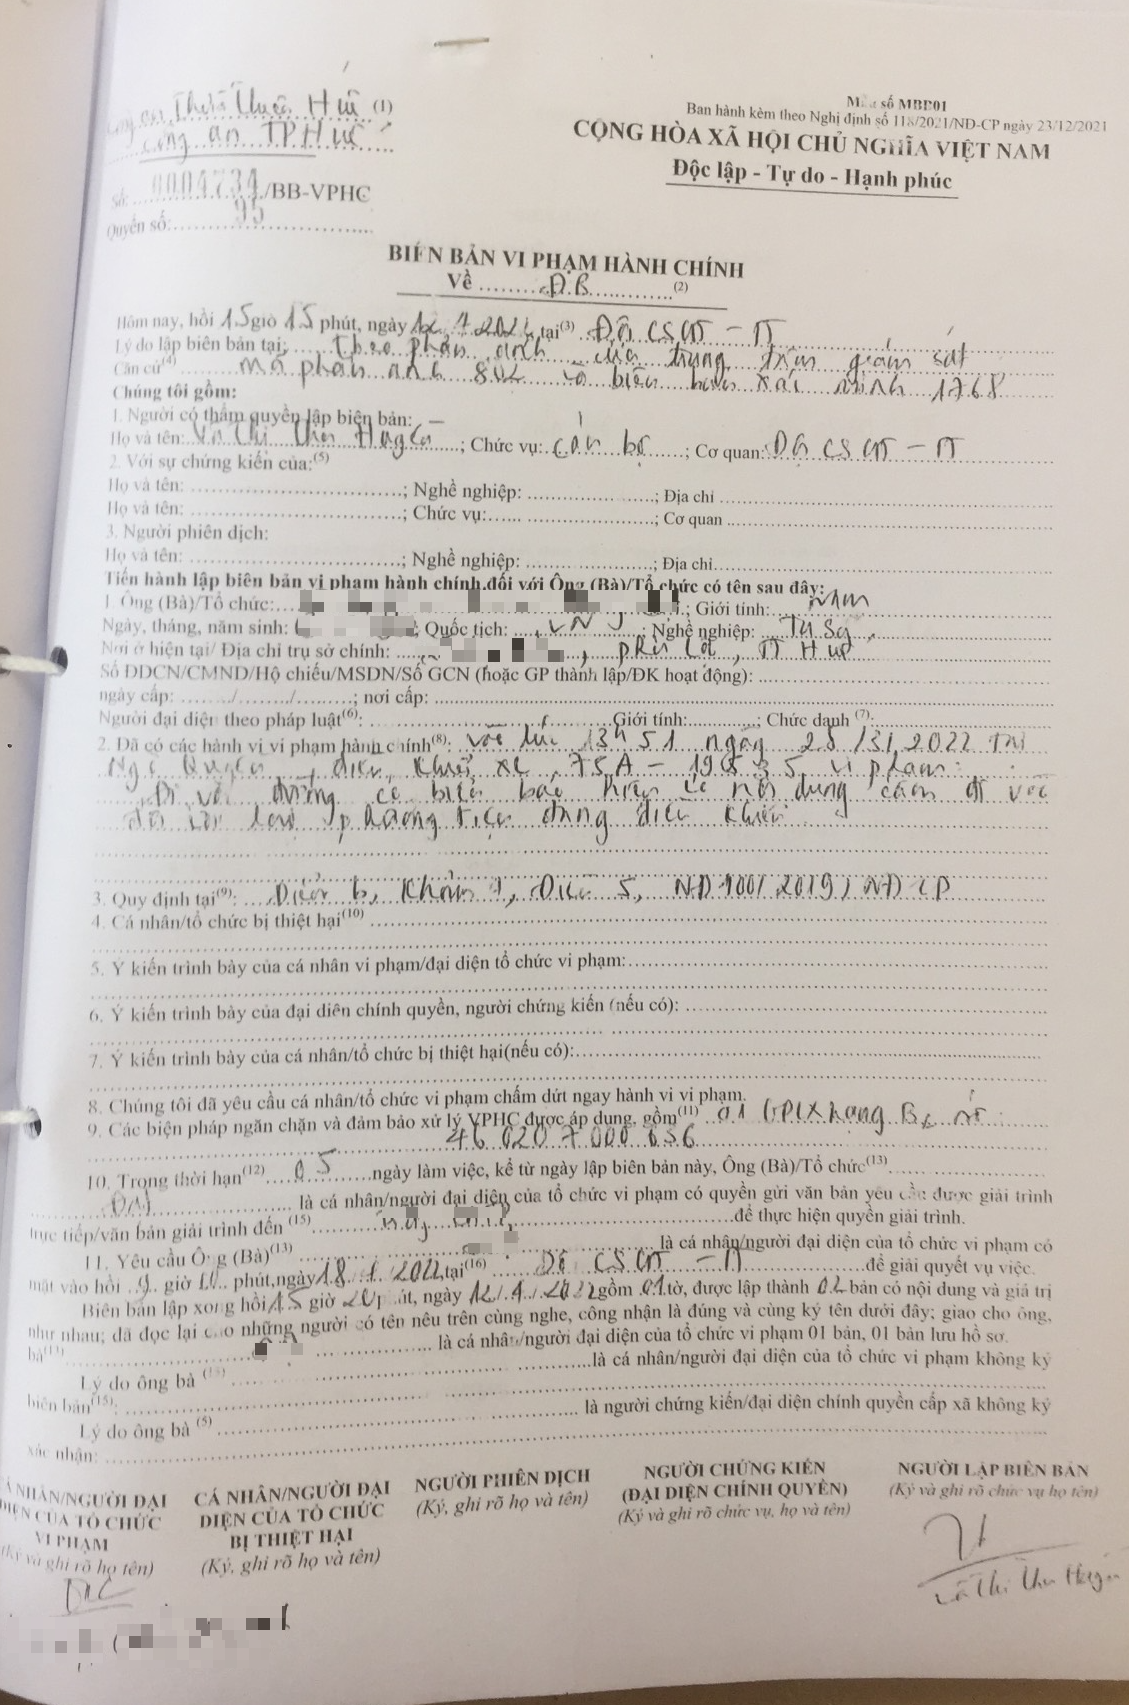 Công an Thừa Thiên Huế (1)
Công an TP Huế
Mẫu số MBB01
Ban hành kèm theo Nghị định số 118/2021/NĐ-CP ngày 23/12/2021
CỘNG HÒA XÃ HỘI CHỦ NGHĨA VIỆT NAM
Độc lập - Tự do - Hạnh phúc
Số: 0004734/BB-VPHC
Quyển số: 95
BIÊN BẢN VI PHẠM HÀNH CHÍNH
Về ĐB (2)
Hôm nay, hồi 15 giờ 15 phút, ngày 12.4.2022, tại(3) Đội CSGT - TT
Lý do lập biên bản tại: Theo phản ánh của trung tâm giám sát
Căn cứ(4) mã phản ánh 802 và biên bản xác minh 1768
Chúng tôi gồm:
1. Người có thẩm quyền lập biên bản:
Họ và tên: Thị Thu; Chức vụ: cán bộ; Cơ quan: Đội CSGT - TT
2. Với sự chứng kiến của:(5)
Họ và tên: ; Nghề nghiệp: ; Địa chỉ
Họ và tên: ; Chức vụ: ; Cơ quan
3. Người phiên dịch:
Họ và tên: ; Nghề nghiệp: ; Địa chỉ
Tiến hành lập biên bản vi phạm hành chính đối với Ông (Bà)/Tổ chức có tên sau đây:
1. Ông (Bà)/Tổ chức: ; Giới tính: Nam
Ngày, tháng, năm sinh: ; Quốc tịch: VN; Nghề nghiệp:
Nơi ở hiện tại/ Địa chỉ trụ sở chính: , TT Huế
Số ĐDCN/CMND/Hộ chiếu/MSDN/Số GCN (hoặc GP thành lập/ĐK hoạt động):
ngày cấp: / / ; nơi cấp:
Người đại diện theo pháp luật(6): Giới tính: ; Chức danh (7):
2. Đã có các hành vi vi phạm hành chính(8): vào lúc 13h51 ngày 25/3/2022 tại
Ngô Quyền, điều khiển xe 75A - vi phạm:
Đi vào đường có biển báo hiệu có nội dung cấm đi vào
đối với loại phương tiện đang điều khiển
3. Quy định tại(9): Điểm b, Khoản 4, Điều 5, NĐ 100/2019/NĐ-CP
4. Cá nhân/tổ chức bị thiệt hại(10)
5. Ý kiến trình bày của cá nhân vi phạm/đại diện tổ chức vi phạm:
6. Ý kiến trình bày của đại diện chính quyền, người chứng kiến (nếu có):
7. Ý kiến trình bày của cá nhân/tổ chức bị thiệt hại(nếu có):
8. Chúng tôi đã yêu cầu cá nhân/tổ chức vi phạm chấm dứt ngay hành vi vi phạm.
9. Các biện pháp ngăn chặn và đảm bảo xử lý VPHC được áp dụng, gồm(11) 01 GPLX hạng B2 số:
46 0207000656
10. Trong thời hạn(12) 05 ngày làm việc, kể từ ngày lập biên bản này, Ông (Bà)/Tổ chức(13)
là cá nhân/người đại diện của tổ chức vi phạm có quyền gửi văn bản yêu cầu được giải trình
trực tiếp/văn bản giải trình đến (15) để thực hiện quyền giải trình.
11. Yêu cầu Ông (Bà)(13) là cá nhân/người đại diện của tổ chức vi phạm có
mặt vào hồi 9 giờ phút, ngày 18.4.2022 tại(16) Đội CSGT - TT để giải quyết vụ việc.
Biên bản lập xong hồi 15 giờ 20 phút, ngày 12/4/2022 gồm 01 tờ, được lập thành 02 bản có nội dung và giá trị
như nhau; đã đọc lại cho những người có tên nêu trên cùng nghe, công nhận là đúng và cùng ký tên dưới đây; giao cho ông,
bà là cá nhân/người đại diện của tổ chức vi phạm 01 bản, 01 bản lưu hồ sơ.
Lý do ông bà là cá nhân/người đại diện của tổ chức vi phạm không ký
biên bản(15):
Lý do ông bà (5) là người chứng kiến/đại diện chính quyền cấp xã không ký
xác nhận:
CÁ NHÂN/NGƯỜI ĐẠI DIỆN CỦA TỔ CHỨC VI PHẠM
(Ký và ghi rõ họ tên)
CÁ NHÂN/NGƯỜI ĐẠI DIỆN CỦA TỔ CHỨC BỊ THIỆT HẠI
(Ký, ghi rõ họ và tên)
NGƯỜI PHIÊN DỊCH
(Ký, ghi rõ họ và tên)
NGƯỜI CHỨNG KIẾN
(ĐẠI DIỆN CHÍNH QUYỀN)
(Ký và ghi rõ chức vụ, họ và tên)
NGƯỜI LẬP BIÊN BẢN
(Ký và ghi rõ chức vụ họ tên)
Thị Thu